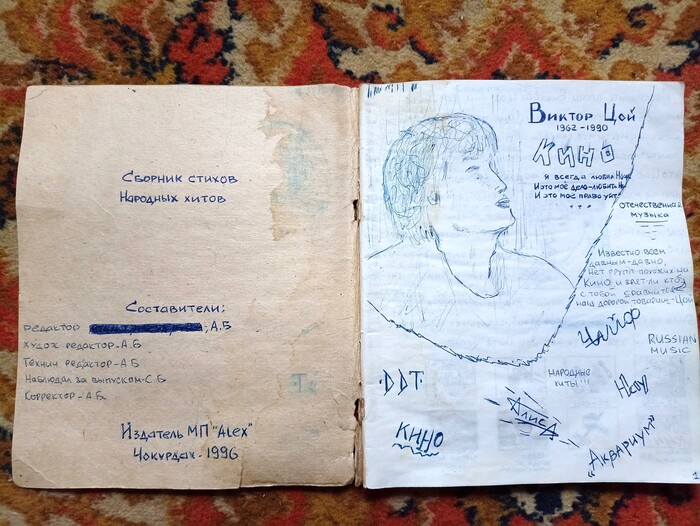 Сборник стихов
Народных хитов
Составители:
редактор А.Б
Худож редактор-А.Б
Технич редактор-А.Б
Наблюдал за выпуском-С.Б
Корректор-А.Б.
Издатель МП "Alex"
Чокурдах-1996
Виктор Цой
1962-1990
Кино
Я всегда любил
И это моё дело-любить
И это моё право
...
отечественная
музыка
Известно всем
давным-давно,
Нет групп похожих на
Кино, и
с тобой
наш дорогой товарищ-Цой
Чайф
RUSSIAN
MUSIC
Народные
хиты!!!
·DDT·
Алиса
Кино
"Аквариум"
1